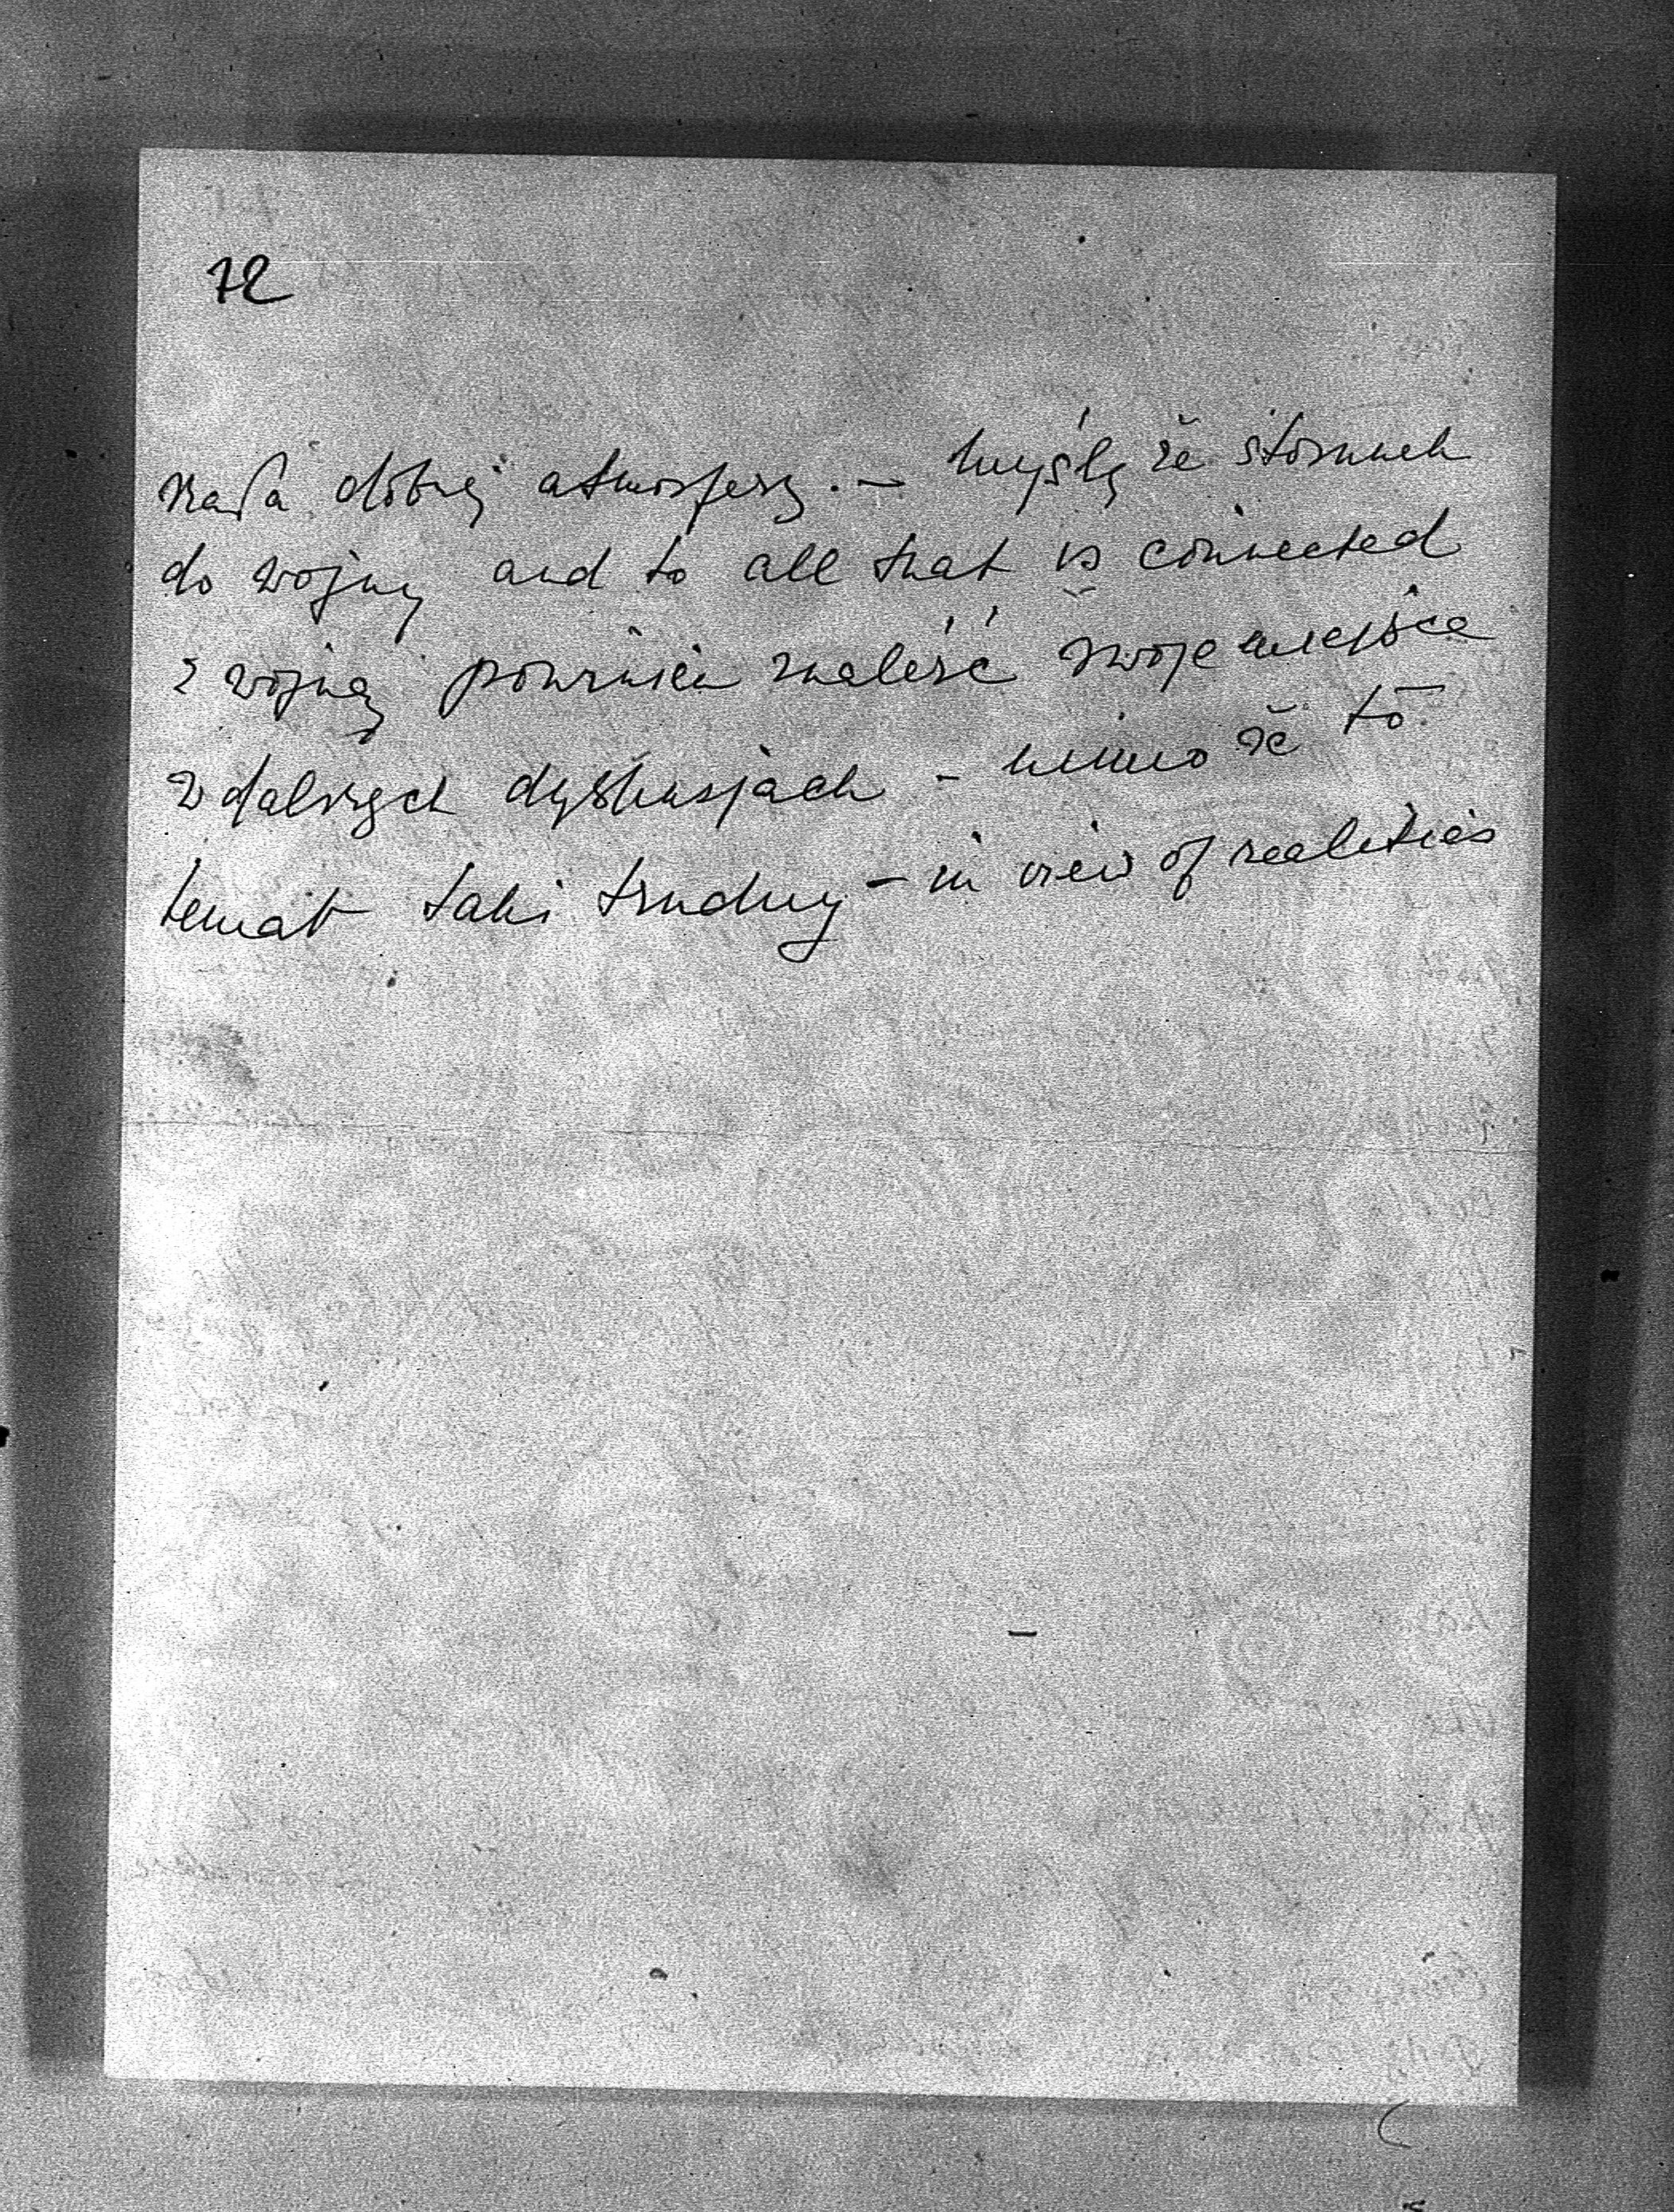 72
nasa dobrej atmosfery. – Myślę że stosunek
do wojny and to all that is connected
z wojną powinien znaleść swoje miejsce
w dalszych dyskusjach – mimo że to
temat taki trudny – in view of realities